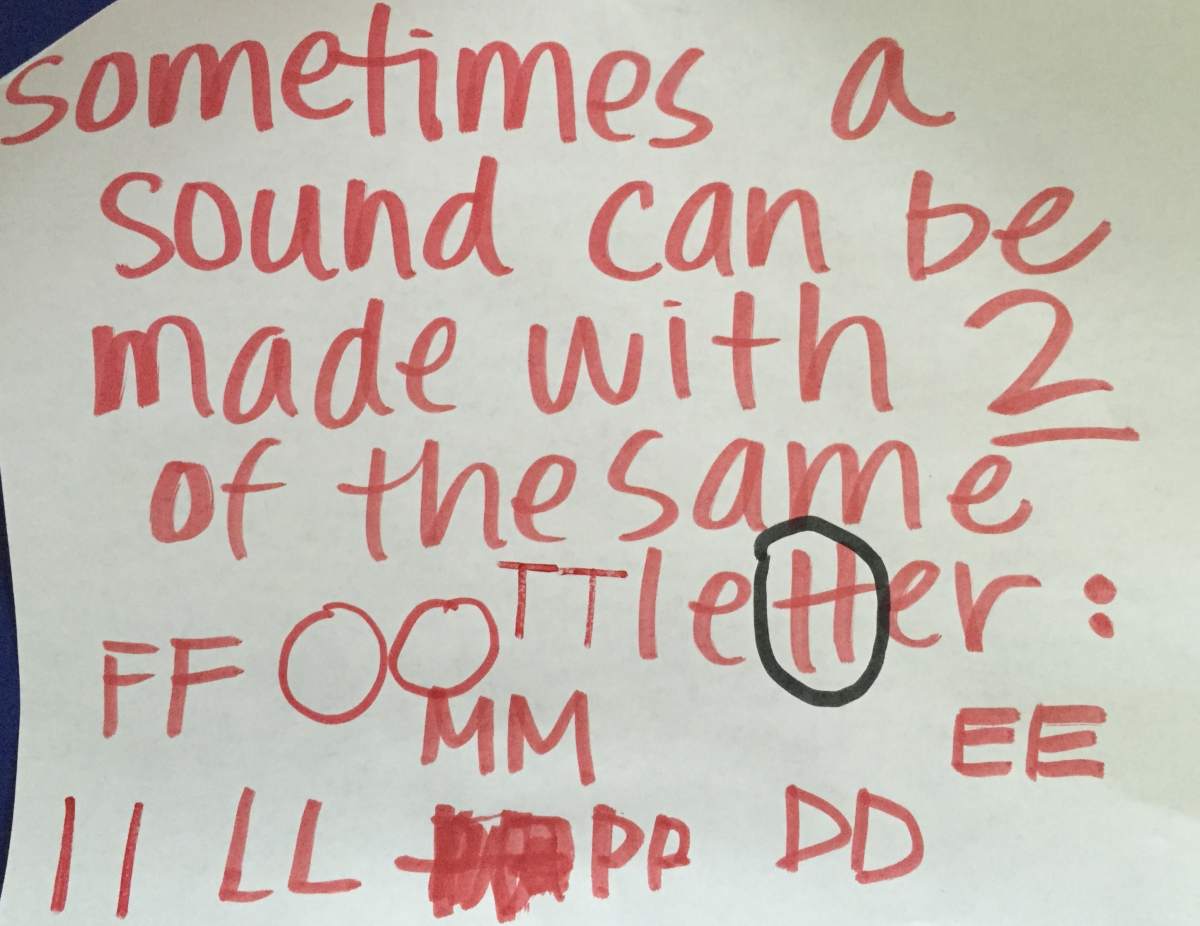 sometimes a
sound can be
made with 2
of the same
TT letter:
FF OO
MM EE
ll LL PP DD